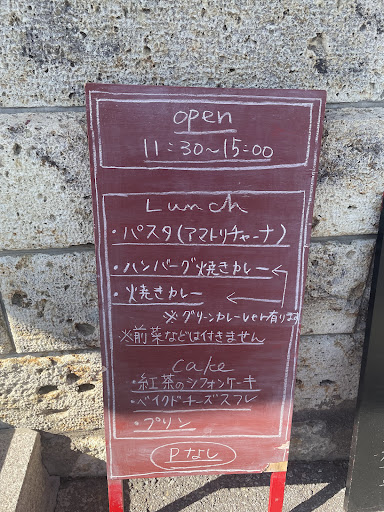 open
11:30~15:00
Lunch
・パスタ(アマトリチャーナ)
・ハンバーグ焼きカレー
・焼きカレー
※グリーンカレーver有ります
※前菜などは付きません
cake
・紅茶のシフォンケーキ
・ベイクドチーズスフレ
・プリン
Pなし